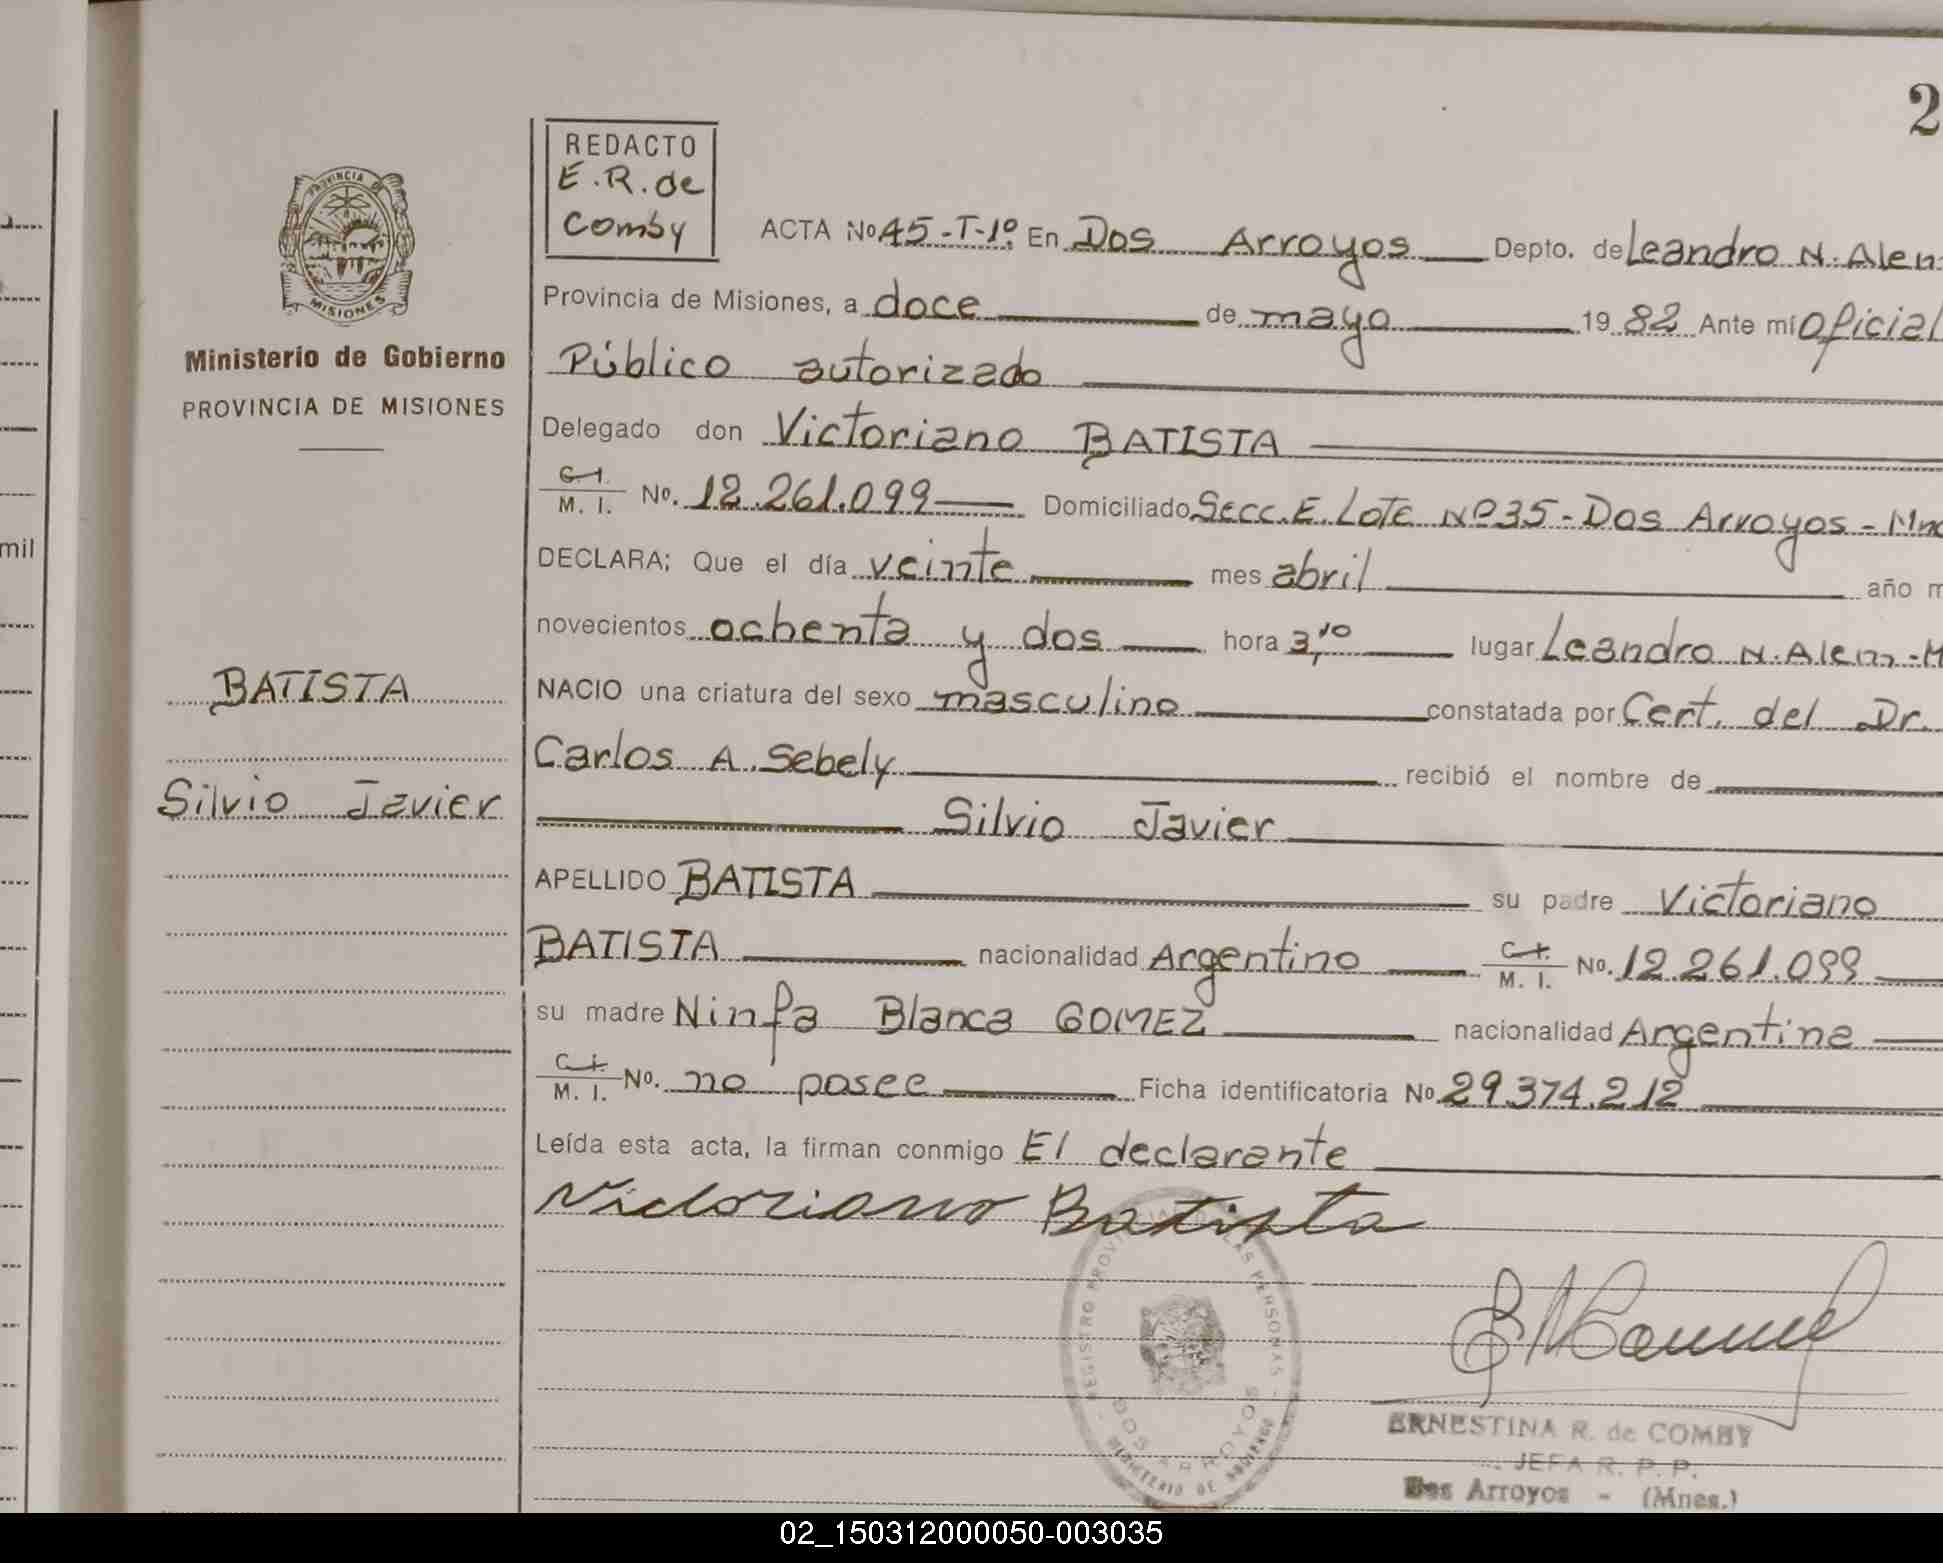 2
REDACTO
E.R. de
Comby
PROVINCIA DE
MISIONES
Ministerio de Gobierno
PROVINCIA DE MISIONES
ACTA No 45-T-1º. En Dos Arroyos Depto. de Leandro N. Alem
Provincia de Misiones, a doce de mayo 1982 Ante mí Oficial
Público autorizado
Delegado don Victoriano BATISTA
C.I. M. I. No. 12.261.099 Domiciliado Secc. E. Lote Nº 35 - Dos Arroyos - Mnes
DECLARA; Que el día veinte mes abril año m
mil
novecientos ochenta y dos hora 3,10 lugar Leandro N. Alem - M
BATISTA
Silvio Javier
NACIO una criatura del sexo masculino constatada por Cert. del Dr.
Carlos A. Sebely recibió el nombre de
Silvio Javier
APELLIDO BATISTA su padre Victoriano
BATISTA nacionalidad Argentino C.I. M. I. No. 12.261.099
su madre Ninfa Blanca GOMEZ nacionalidad Argentina
C.I. M. I. No. no posee Ficha identificatoria No 29.374.212
Leída esta acta, la firman conmigo El declarante
Victoriano Batista
REGISTRO PROVINCIAL DE LAS PERSONAS
DOS ARROYOS
MINISTERIO DE GOBIERNO
ERNESTINA R. de COMBY
JEFA R. P. P.
Dos Arroyos - (Mnes.)
02_150312000050-003035